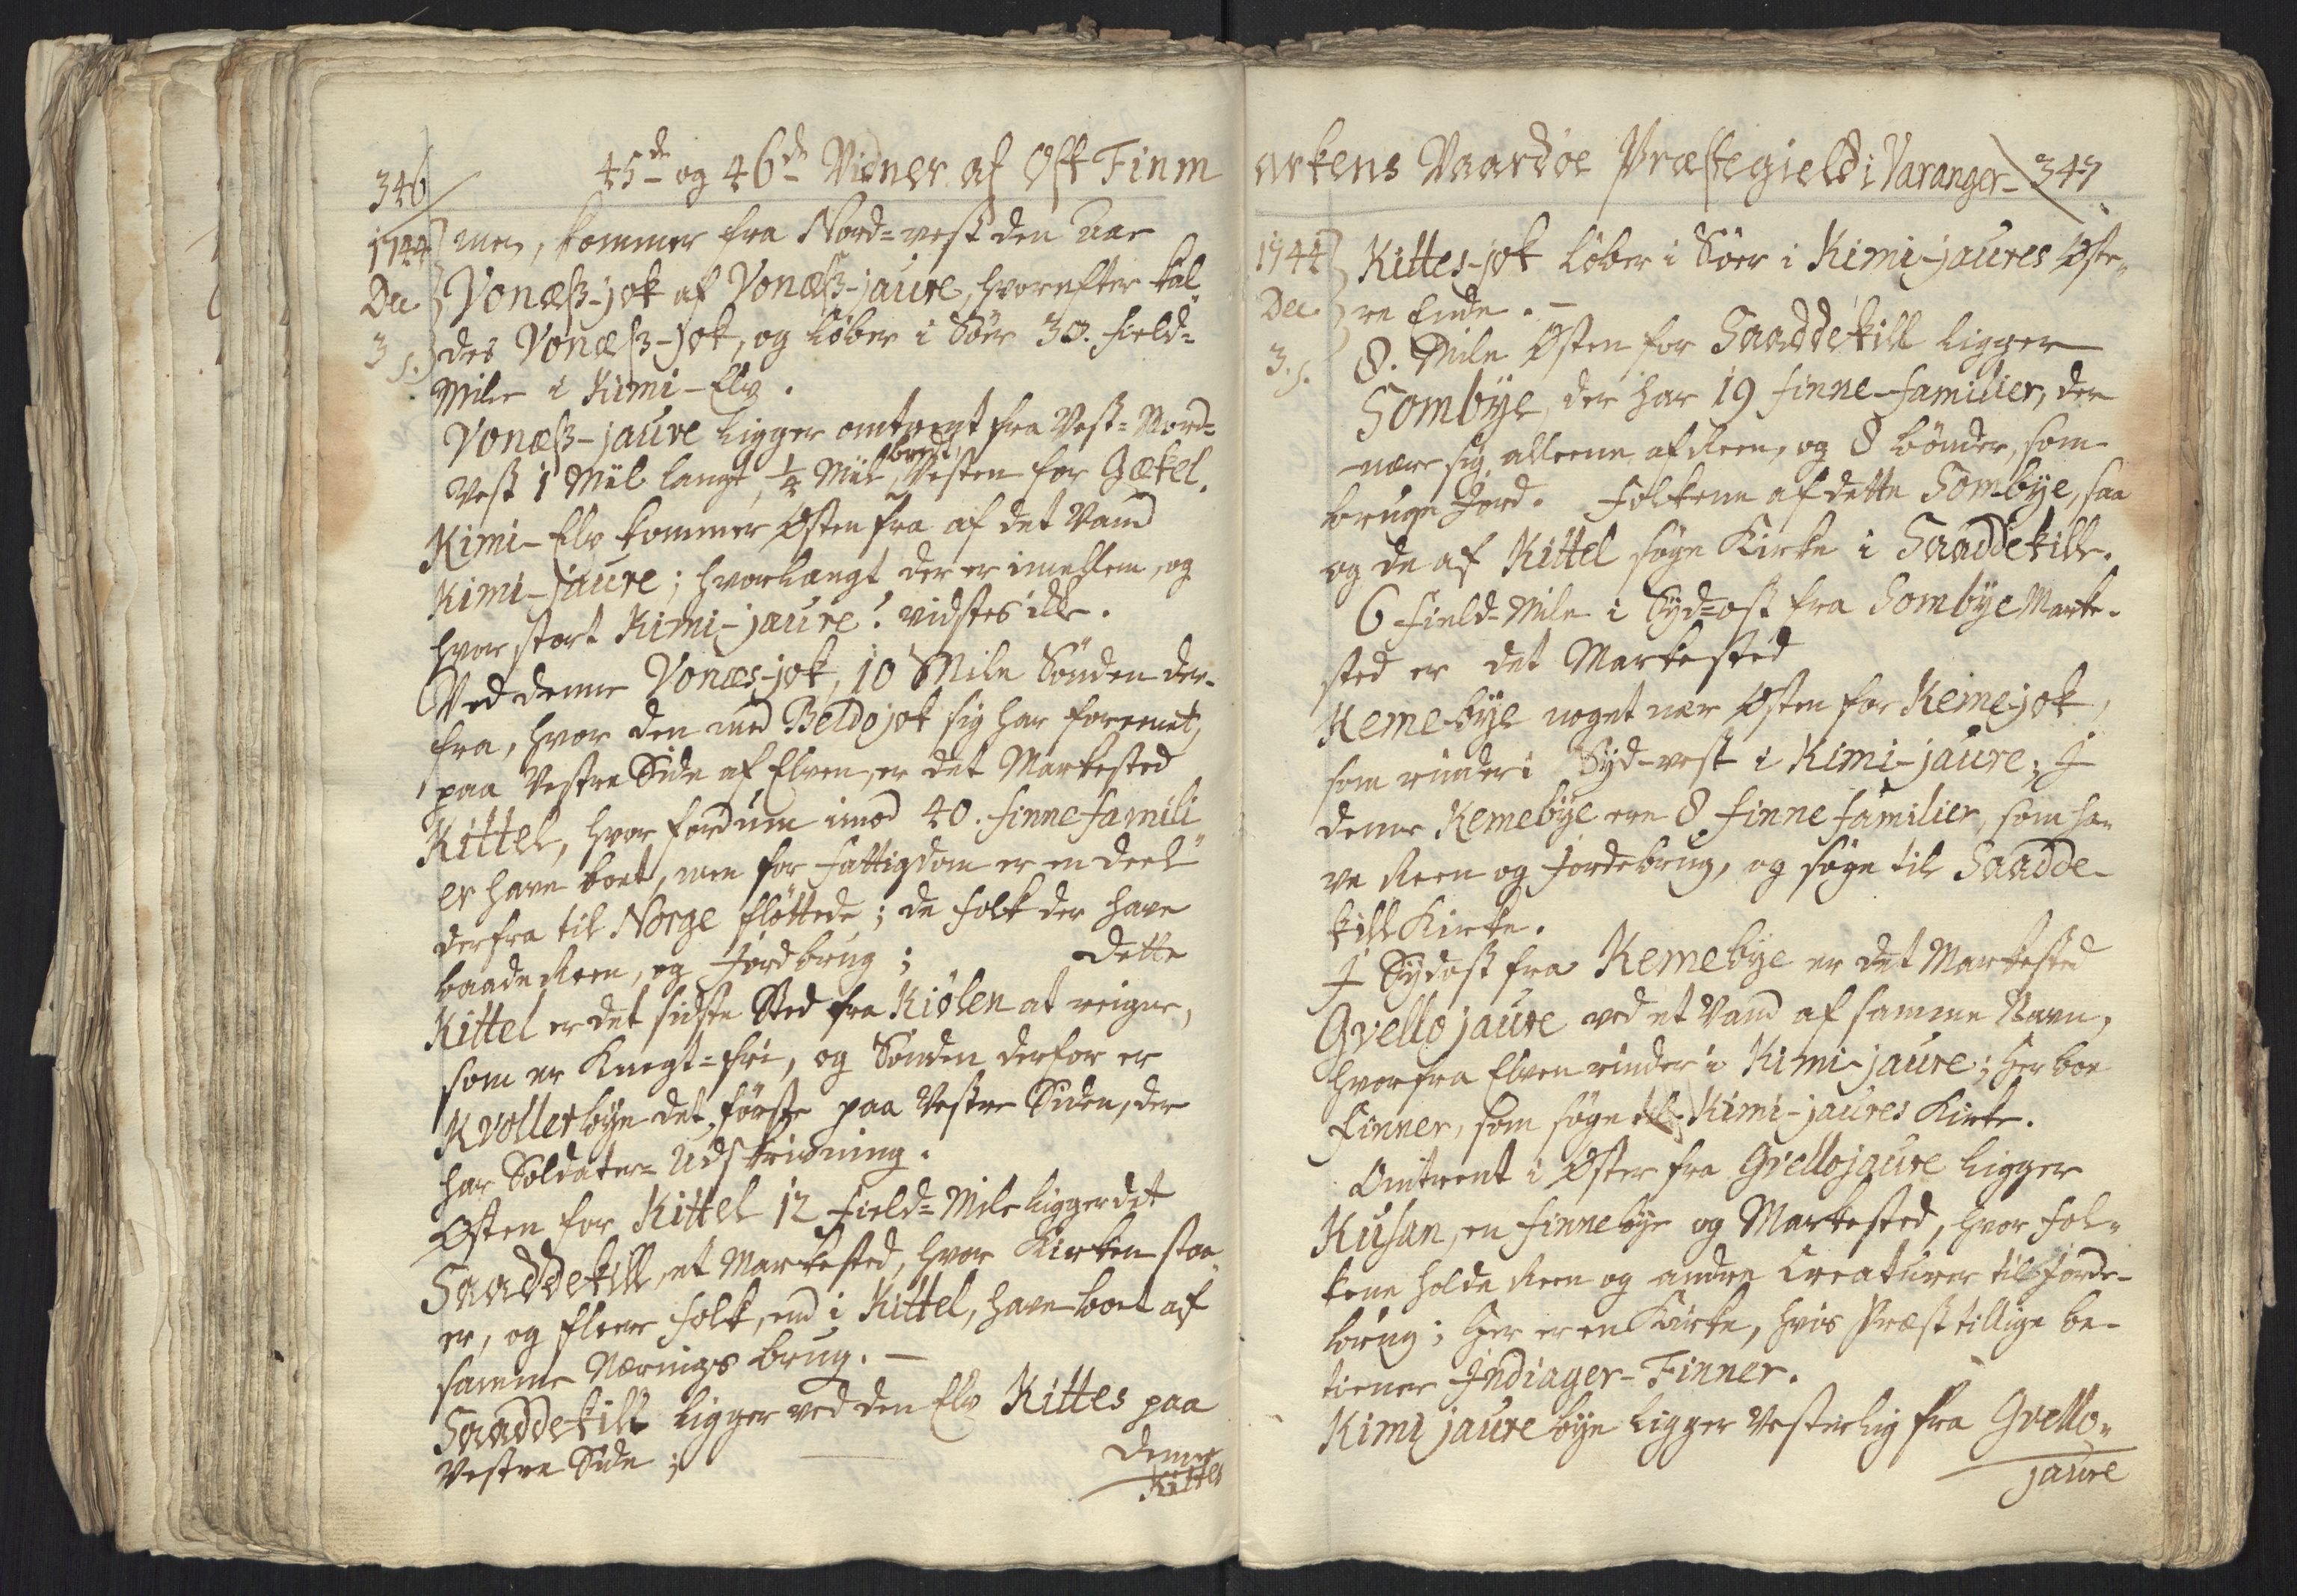 346
45de og 46de Vidner af Ost Finm
1744
Dec
3 s.
men, kommer fra Nord-vest den Aae
Vonæss-jok af Vonæss-jaure, hvorefter kal„
des Vonæss-jok, og løber i Sôer 30. field-
Mile i Kimi-Elv.
Vonæss-jaure ligger omtrent fra Vest-Nord-
Vest 1 Miil langt, ¼ Miil bredt, Vesten for Gækel.
Kimi-Elv kommer Østen fra af det Vand
Kimi-jaure; hvorlangt der er imellem, og
hvor stort Kimi-jaure? vidstes ikke.
Ved denne Vonæs-jok, 10 Mile Sönden der-
fra, hvor den med Beldojok sig har foreenet,
paa Vestre Side af Elven, er det Markested
Kittel, hvor fordum imod 40. finne famili„
er have boet, men for Fattigdom er en deel
derfra til Norge flöttede; de folk der have
baade Reen, og Jordbrug; dette
Kittel er det sidste Sted fra Kiölen at reigne,
som er Knegt-frie, og Sönden derfor er
Kvolletbye det förste paa Vestre Siden, der
har Soldater-Udskrivning.
Østen for Kittel 12 field-Mile ligger det
Saaddekill, et Markested, hvor Kirken staa„
er, og fleere folk, end i Kittel, have boet af
samme Nærings brug. —
Saaddekill ligger ved den Elv Kittes paa
Vestre Side; denne
Kittes
arkens Vaardöe Præstegield i Varanger- 347
1744
Dec
3. s.
Kittes-jok löber i Söer i Kimi-jaures Øste„
re Ende. —
8. Mile Østen for Saaddekill ligger
Sombye, der har 19 finne-familier, der
nære sig alleene af Reen, og 8 bönder, som
bruge Jord. Folkene af dette Sombye, saa
og de af Kittel söge Kirke i Saaddekill.
6 field-Mile i Syd-ost fra Sombye Marke-
sted er det Markested
Kemebye noget nær Østen for Kemejok,
som rinder i Syd-vest i Kimi-jaure. I
denne Kemebye ere 8 finne familier, som ha„
ve Reen og Jordebrug, og söge til Saadde-
kill Kirke.
I Sydost fra Kemebye er det Markested
Gvellojaure ved et Vand af samme Navn,
hvorfra Elven rinder i Kimi-jaure; her boe
Finner, som söge til Kimi-jaures Kirke.
Omtrent i Øster fra Gvellojaure ligger
Kusan, en finnebye og Markested, hvor fol„
kene holde Reen og andre Creaturer til Jorde-
brug; her er en Kirke, hvis Præst tillige be-
tiener Indiager-Finner.
Kimijaure bye ligger Vesterlig fra Gvello„
jaure